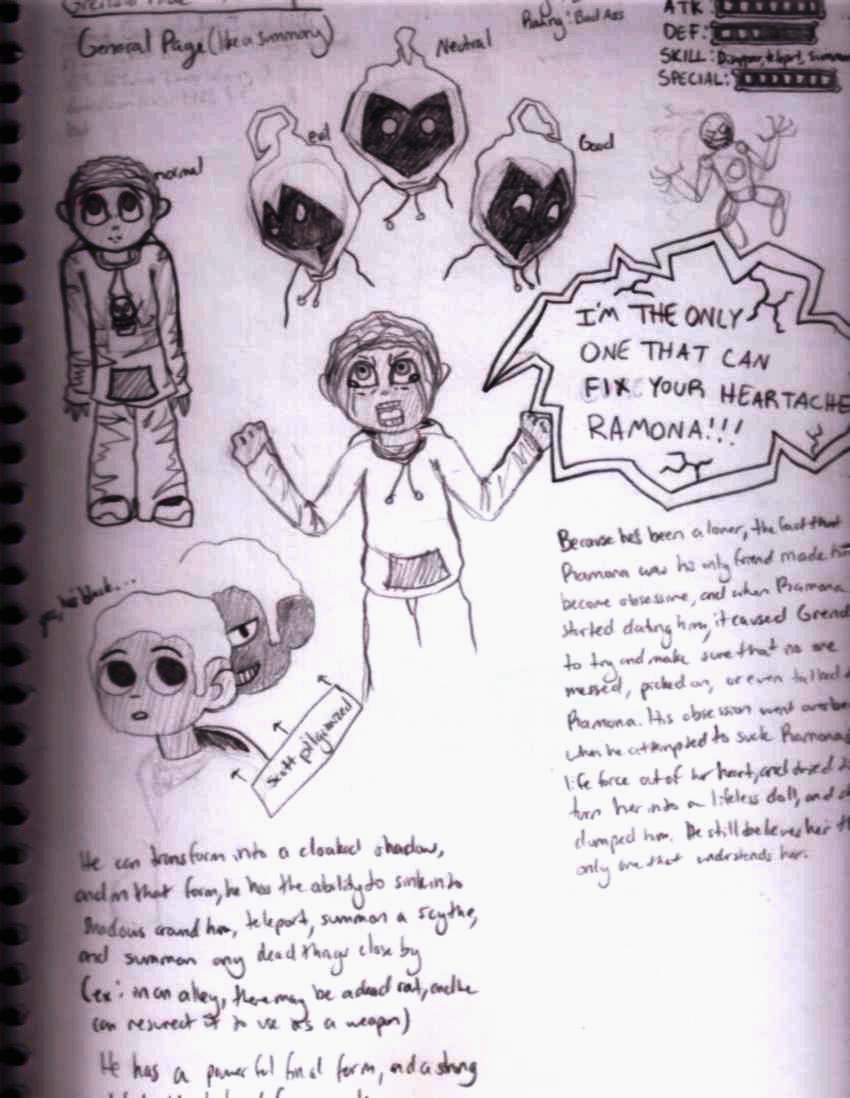 General Page (like a summary)
Rating: Bad Ass
ATK:
DEF:
SKILL: Disappear, teleport, summon
SPECIAL:
Neutral
evil
Good
normal
I'M THE ONLY
ONE THAT CAN
FIX YOUR HEARTACHE
RAMONA!!!
yes, he's black...
scott pilgrimized
Because he's been a loner, the fact that
Ramona was his only friend made him
become obsessive, and when Ramona
started dating him, it caused Grend
to try and make sure that no one
messed, picked on, or even talked
Ramona. His obsession went
when he attempted to suck Ramona
life force out of her heart, and
turn her into a lifeless doll, and
dumped him. He still believes her th
only one that understands her.
He can transform into a cloaked shadow,
and in that form, he has the ability to sink into
shadows around him, teleport, summon a scythe,
and summon any dead things close by
(ex: in an alley, there may be a dead rat, and he
can resurect it to use as a weapon)
He has a powerful final form, and a string